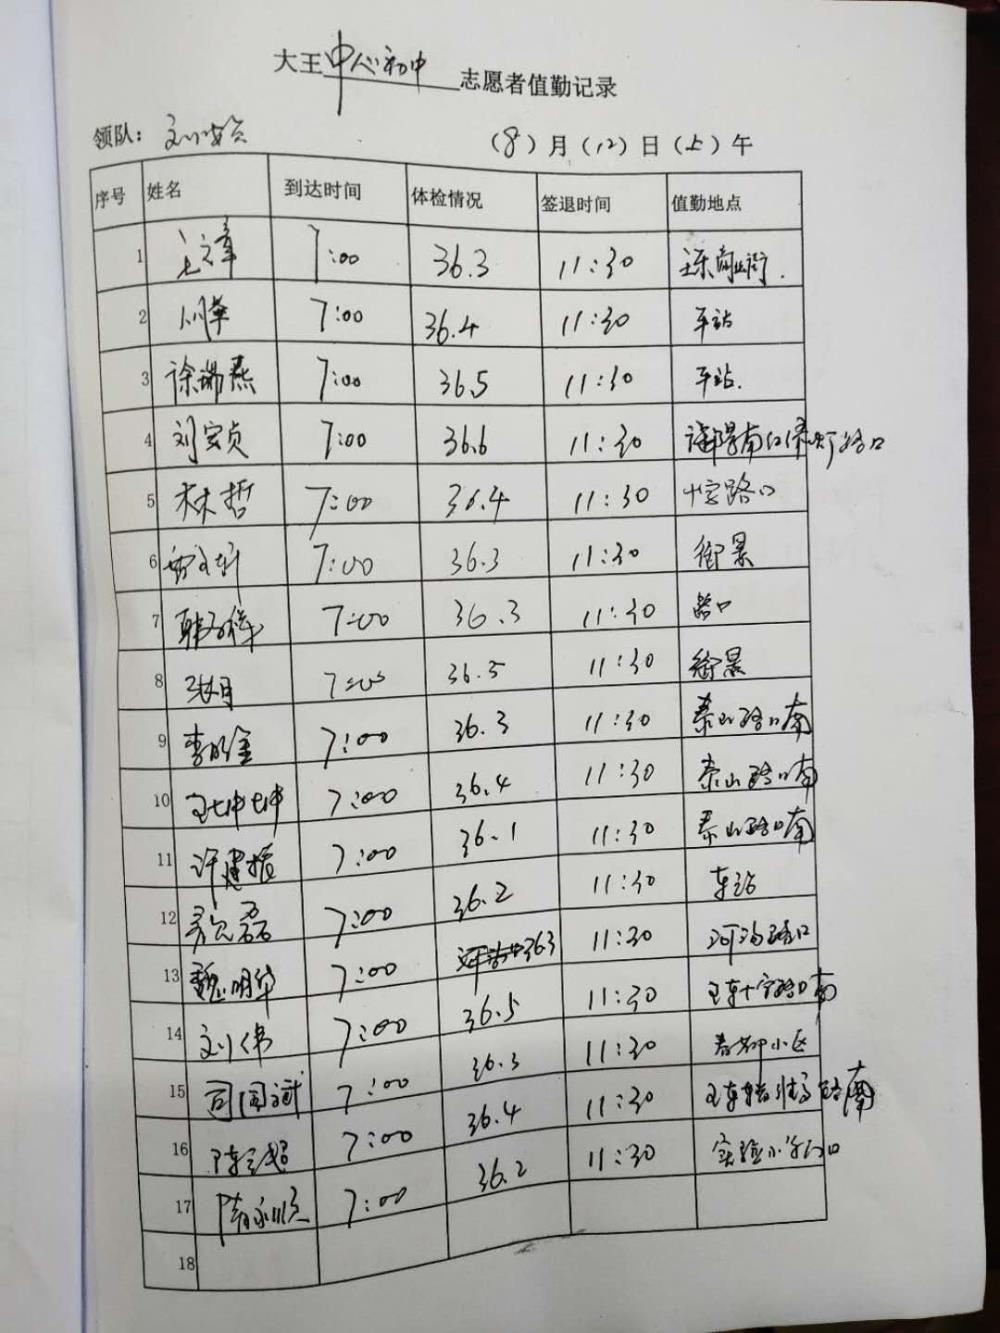 大王中心初中志愿者值勤记录
领队： （8）月（12）日（上）午
序号 姓名 到达时间 体检情况 签退时间 值勤地点
1 7:00 36.3 11:30 商业街.
2 7:00 36.4 11:30 车站
3 徐瑞燕 7:00 36.5 11:30 车站.
4 刘安贞 7:00 36.6 11:30 南红绿灯路口
5 林哲 7:00 36.4 11:30 十字路口
6 7:00 36.3 11:30 街景
7 7:00 36.3 11:30 路口
8 张月 7:00 36.5 11:30 街景
9 7:00 36.3 11:30 泰山路口南
10 王坤坤 7:00 36.4 11:30 泰山路口南
11 许建振 7:00 36.1 11:30 泰山路口南
12 磊 7:00 36.2 11:30 车站
13 魏明华 7:00 363 11:30 路口
14 刘伟 7:00 36.5 11:30 王车十字路口南
15 司国斌 7:00 36.3 11:30 春柳小区
16 7:00 36.4 11:30 路南
17 隋永顺 7:00 36.2 11:30 实验小学门口
18